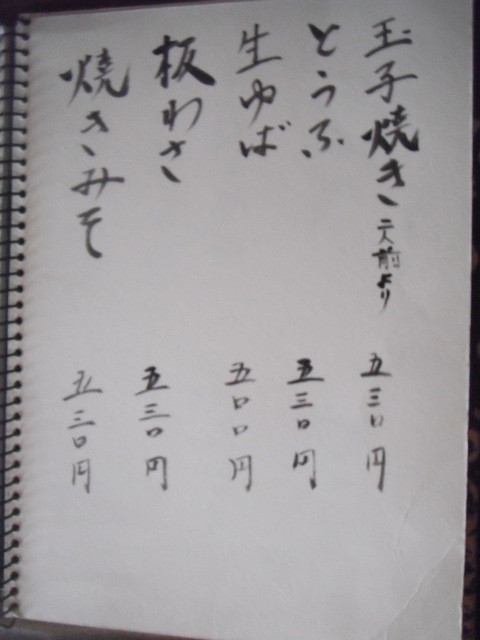 玉子焼き 二人前より 五三〇円
とうふ 五三〇円
生ゆば 五〇〇円
板わさ 五三〇円
焼きみそ 五三〇円